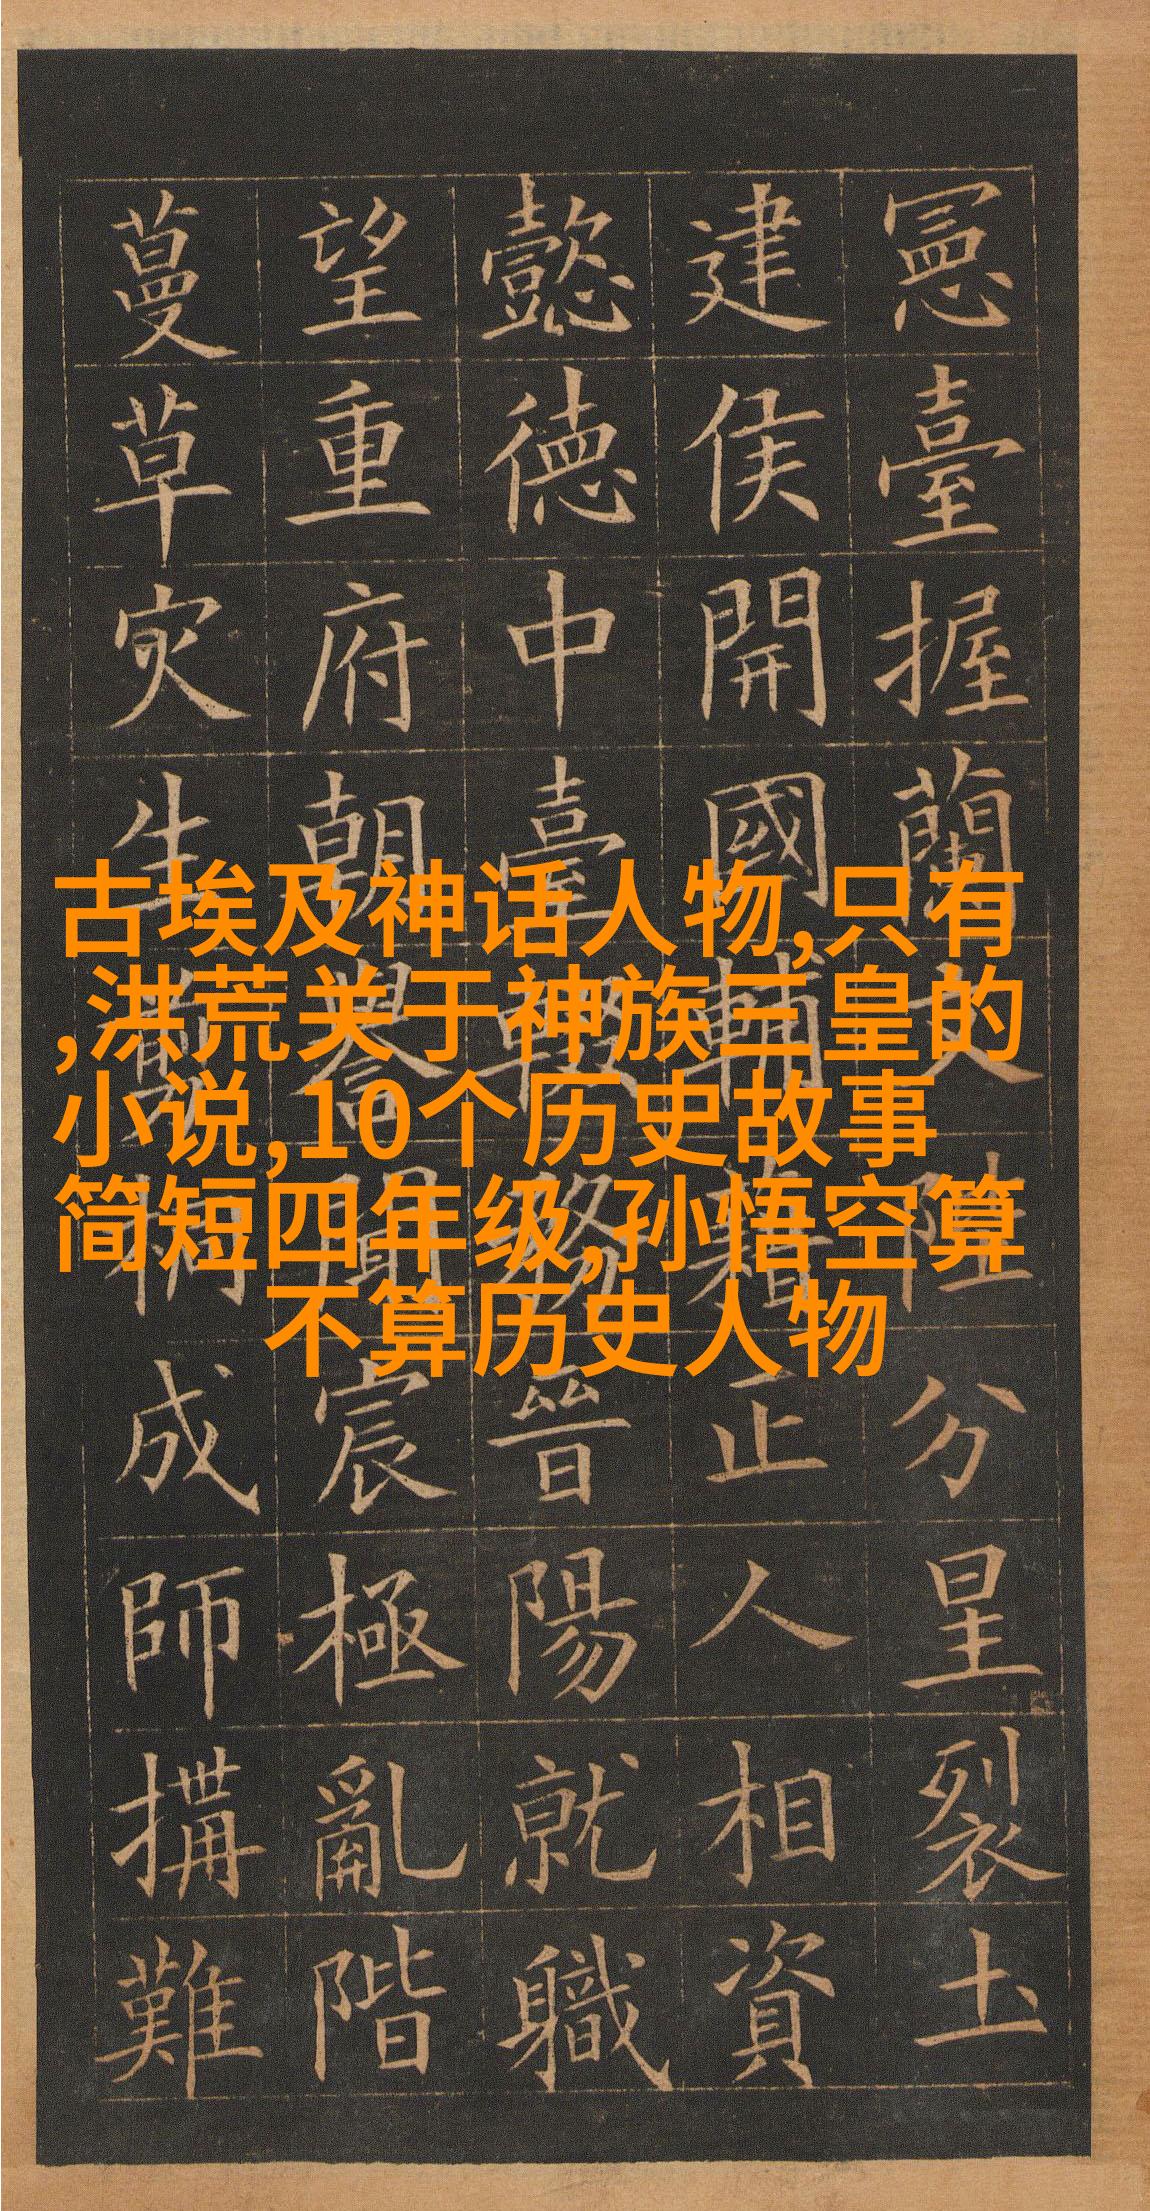 憲臺握蘭文陛分星裂土
建侯開國輔藉正人相資
懿德中臺輟務晉陽就職
望重府朝譽聞宸極亂階
蔓草灾生剪桐成師搆難
古埃及神话人物,只有
,洪荒关于神族三皇的
小说,10个历史故事
简短四年级,孙悟空算
不算历史人物